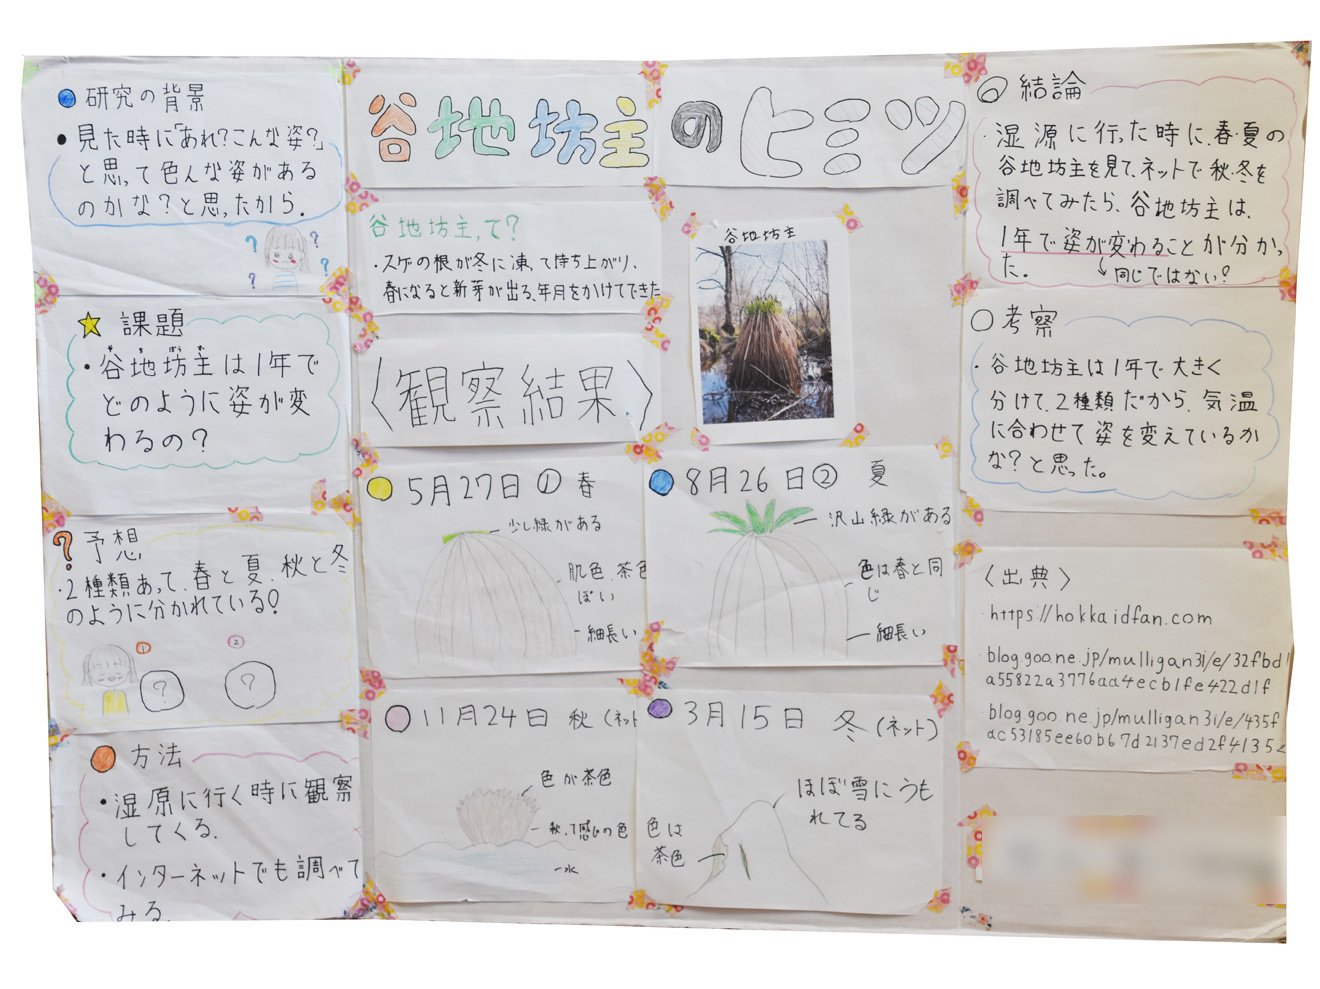 谷地坊主のヒミツ
研究の背景
・見た時に「あれ？こんな姿？」
と思って色んな姿がある
のかな？と思ったから．
? ? ? ?
課題
・谷地坊主は1年で
どのように姿が変
わるの？
？予想
・2種類あって、春と夏、秋と冬
のように分かれている！
① ②
? ?
方法
・湿原に行く時に観察
してくる．
・インターネットでも調べて
みる．
谷地坊主って？
・スゲの根が冬に凍って持ち上がり、
春になると新芽が出る、年月をかけてできた
谷地坊主
〈観察結果〉
5月27日① 春
少し緑がある
肌色、茶色
ぽい
細長い
8月26日② 夏
沢山緑がある
色は春と同
じ
細長い
11月24日 秋（ネット
色が茶色
秋って感じの色
水
3月15日 冬（ネット）
ほぼ雪にうも
れてる
色は
茶色
◎結論
・湿源に行った時に、春・夏の
谷地坊主を見て、ネットで秋・冬を
調べてみたら、谷地坊主は、
1年で姿が変わることが分かっ
た。
同じではない？
○考察
・谷地坊主は1年で大きく
分けて、2種類だから、気温
に合わせて姿を変えているか
な？と思った。
〈出典〉
・https//hokkaidfan.com
・blog.goo.ne.jp/mulligan3i/e/32fbd1
a55822a3776aa4ecb1fe422d1f
・blog.goo.ne.jp/mulligan3i/e/435f
ac53185ee60b67d2137ed2f4135